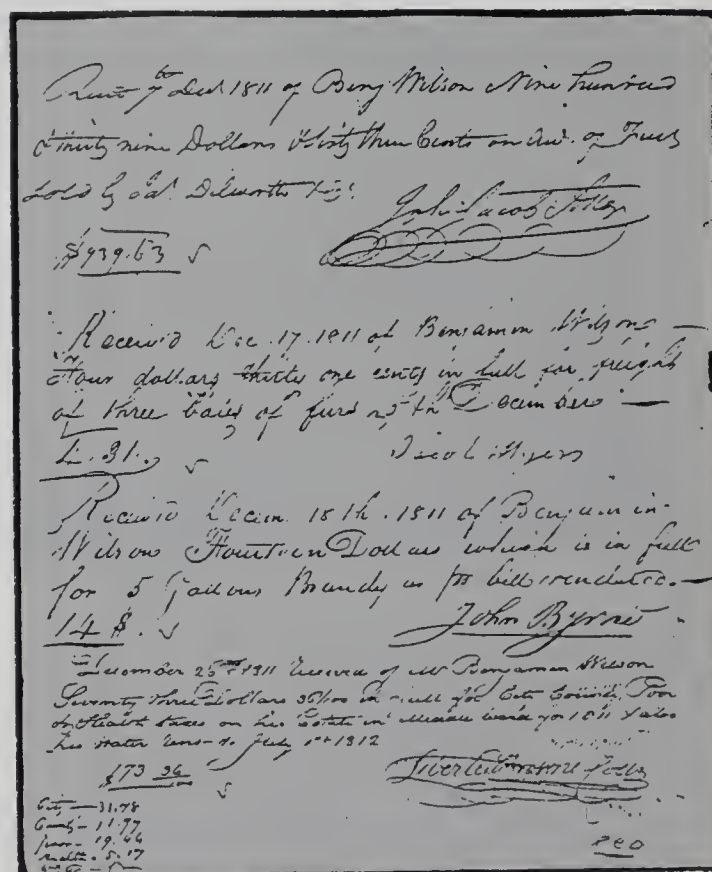 7th Decr 1811 of Benj Wilson Nine hundred
& thirty nine Dollars & Sixty three Cents on of Furs
Sold by Dilworth
John Jacob Astor
$939.63
Received Dec. 17. 1811 of Benjamin Wilson
Four dollars thirty one cents in full for freight
of three bales of furs December
4.31.
Jacob Myers
Received Decem. 18th. 1811 of Benjamin
Wilson Fourteen Dollars which is in full
for 5 Gallons Brandy as pr bill rendered.
14 $.
John Byrne
December 1811 Received of Mr Benjamin Wilson
Seventy three Dollars 36/100 in full for City County Poor
& Health taxes on his Estate in Middle ward for 1811 & also
his water to July 1st 1812
$73 36
City — 31.78
County — 11.97
Poor — 19.44
Health — 5.17